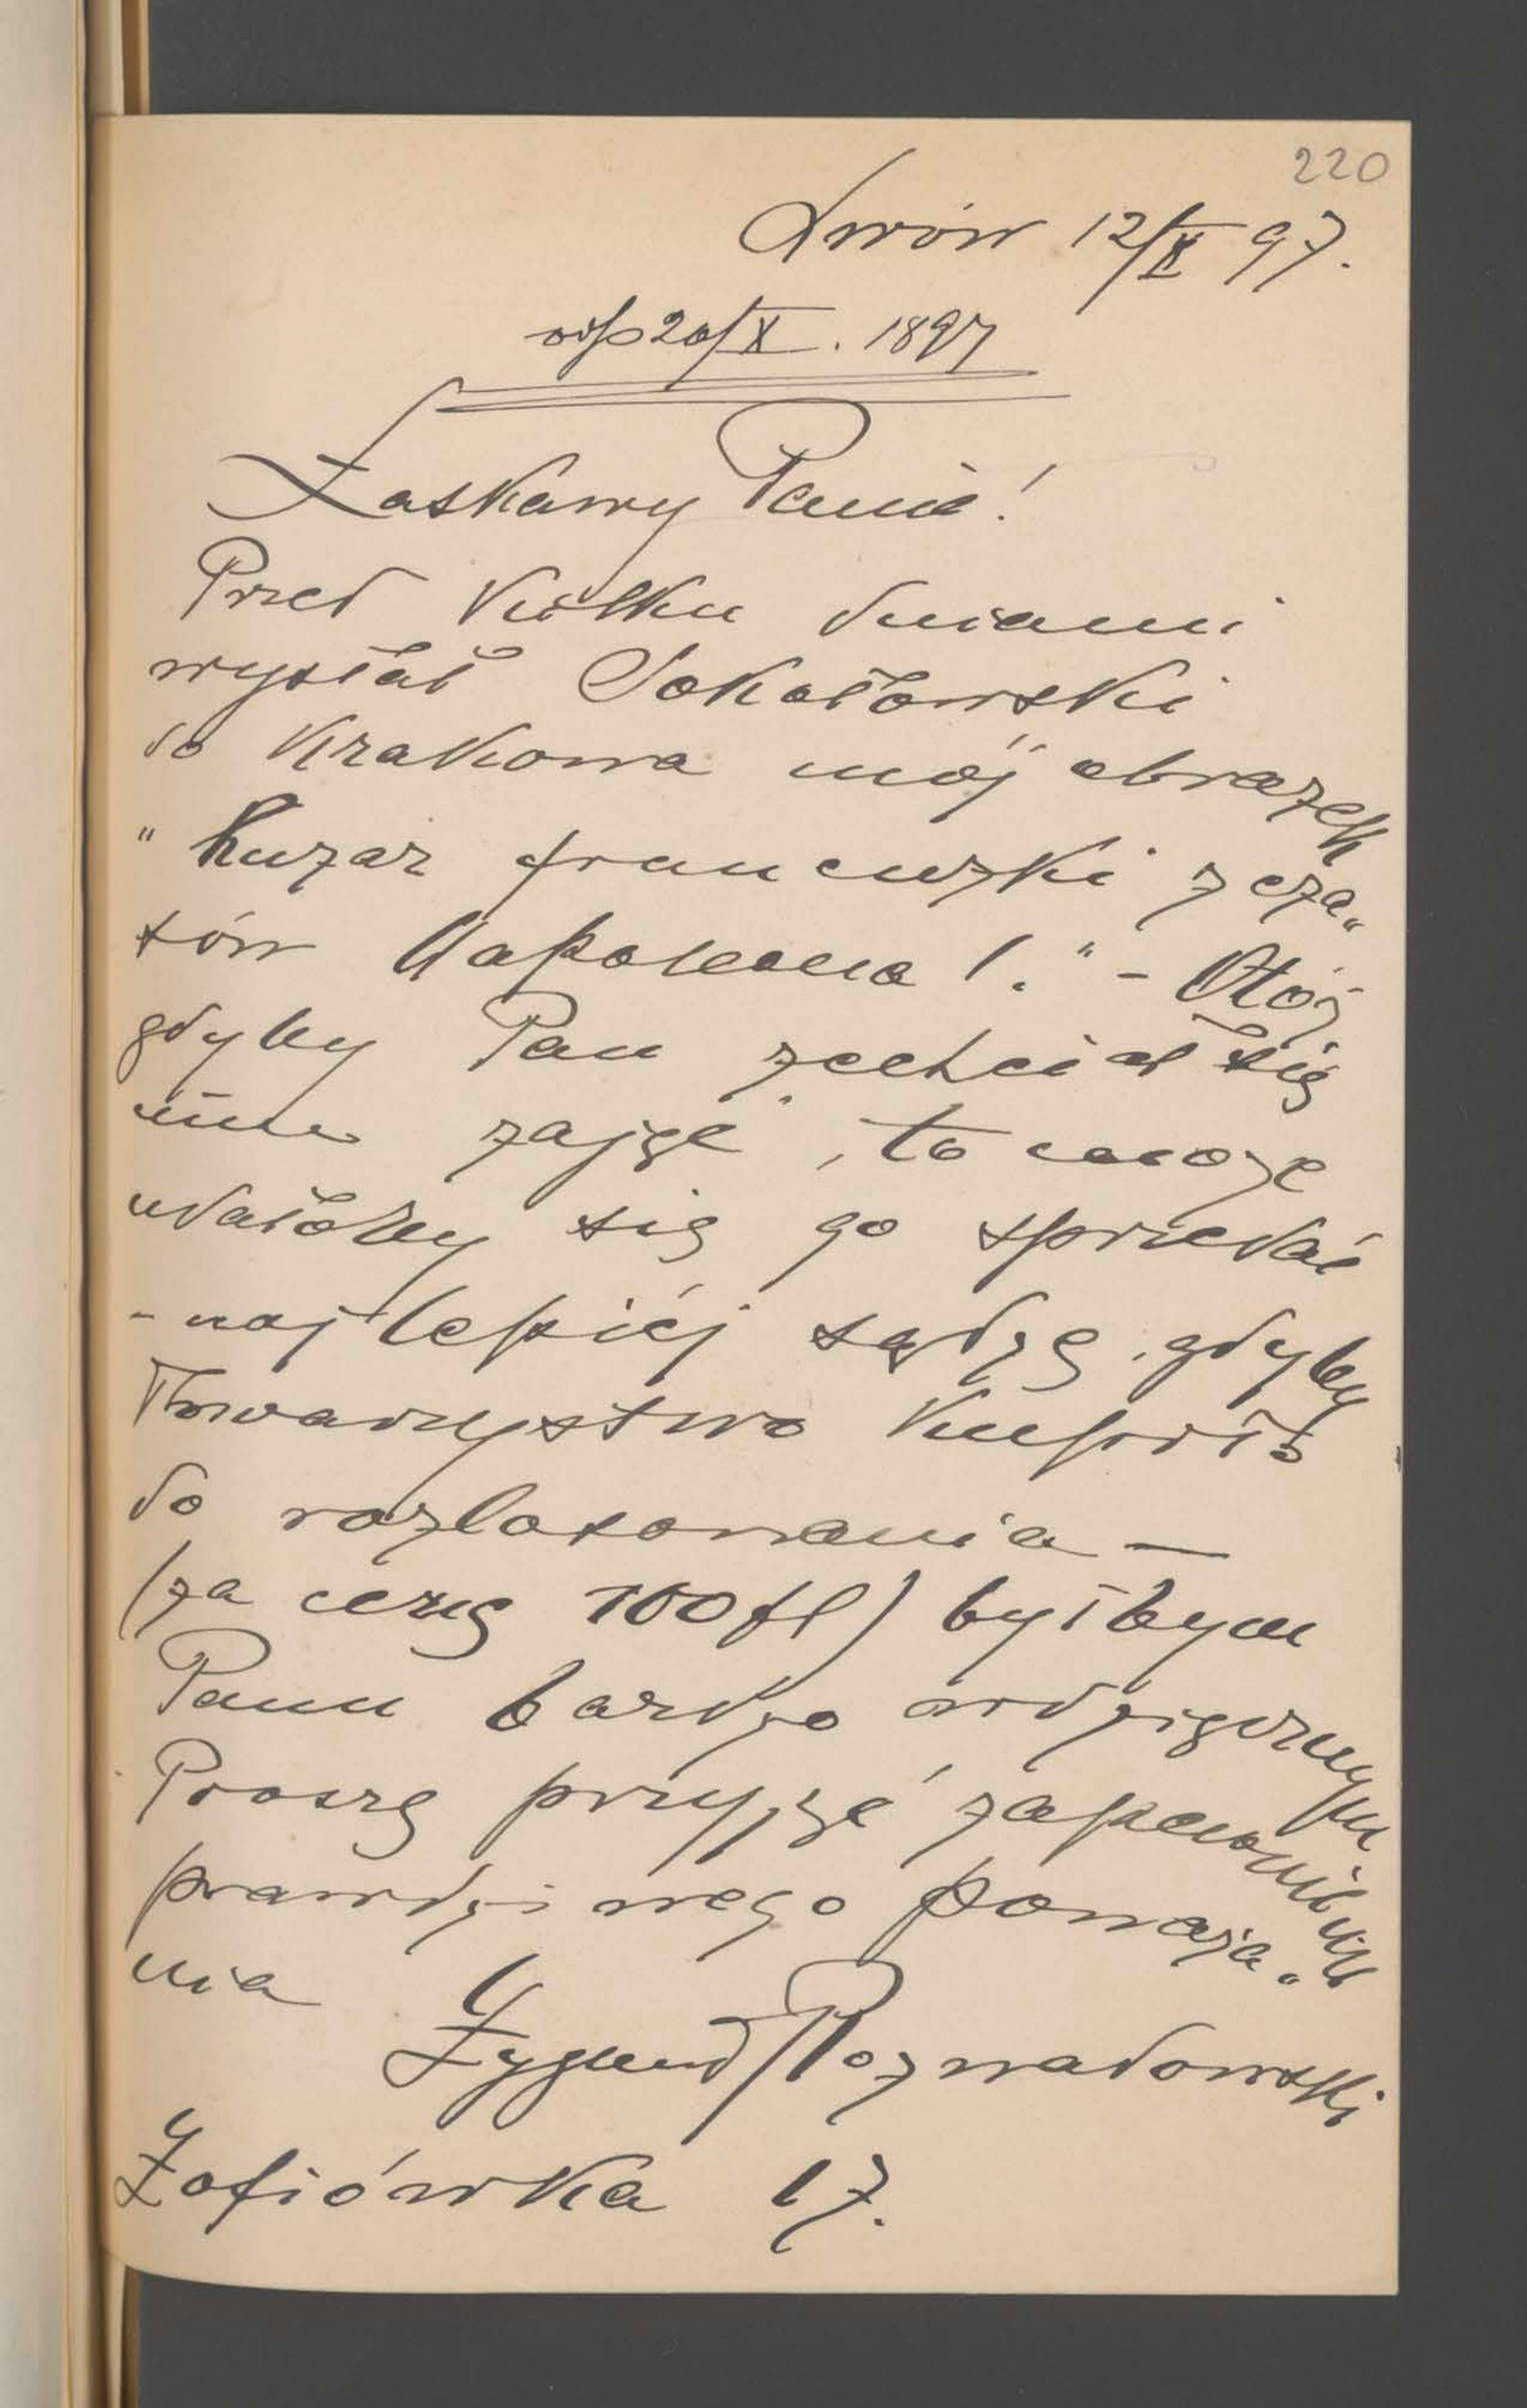 220
Lwów 12/X 97.
odp 20/X. 1897
Łaskawy Panie!
Przed kilku dniami
wysłał Sokołowski
do Krakowa mój obrazek
"Huzar francuzki z cza„
sów Napoleona I." - Otóż
gdyby Pan zechciał się
nim zająć, to może
udałoby się go sprzedać
- najlepiéj sądzę, gdyby
Towarzystwo kupiło
do rozlosowania —
(za cenę 100 fl) byłbym
Panu bardzo wdzięcznym
Proszę przyjąć zapewnienie
prawdziwego poważa„
nia
Zygmund Rozwadowski
Zofiówka 17.